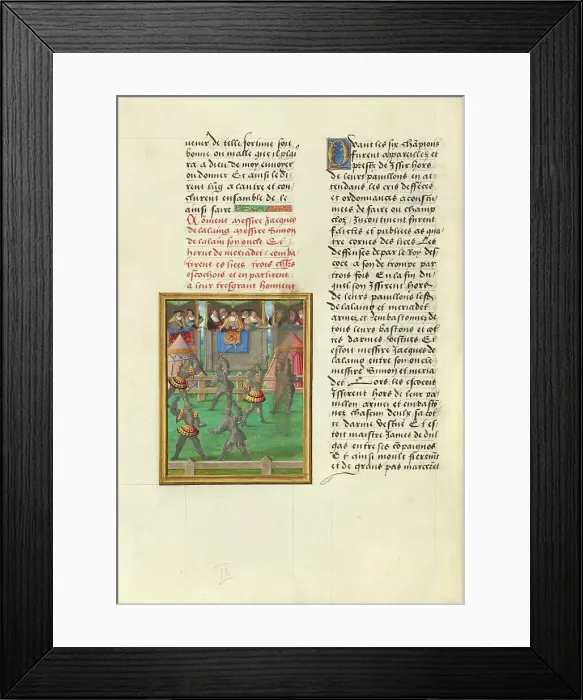 uenir de telle fortune soit
bonne ou malle que il plai
ra a dieu de moy enuoyer
ou donner Et ainsi le di
rent lūg a lautre et con
clurent ensamble de le
ainsi faire
Coment messire Jacques
de lalaing messire Simon
de lalain son oncle Et
herue de meriadet comba
tirent es lices trois chlrs
escochois et en partirent
a leur tresgrant honneur
Dvant les six chāpions
furent appareilliez et
prestz de issir hors
de leurs pauillons en at
tendans les cris deffēces
et ordonnances acoustu
mees de faire ou champ
cloz Incontinent furent
faictes et publiees as qua
tre cornes des lices Les
deffenses de par le Roy des
coce a son de trompe par
trois fois En la fin du
quel son Issirent hors
de leurs pauillons
de lalaing et meriadet
armez et embastonnez de
tous leurs bastons et cot
tes darmes vestues Et
estoit messire Jacques de
lalaing entre son oncle
messire Simon et meria
det Lors les escocois
Issirent hors de leur pa
uillon armez et embasto
nez chascun deulx sa cot
te darme vestue Et es
toit maistre James de du
glas entre ses cōpaignōs
Et ainsi moult fierem̄t
et de grans pas marcerēt